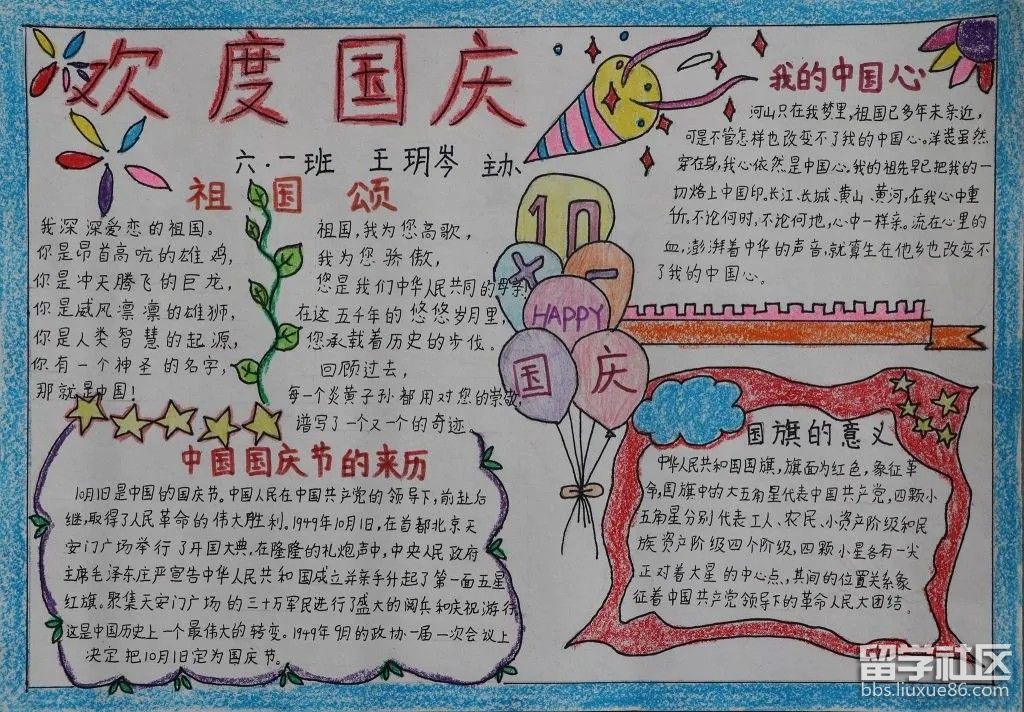 欢度国庆
六·一班 王玥岑 主办
祖国颂
我深深爱恋的祖国。
你是昂首高吭的雄鸡,
你是冲天腾飞的巨龙,
你是威风凛凛的雄狮,
你是人类智慧的起源,
你有一个神圣的名字,
那就是中国!
祖国,我为您高歌,
我为您骄傲,
您是我们中华人民共同的母亲!
在这五千年的悠悠岁月里,
您承载着历史的步伐。
回顾过去,
每一个炎黄子孙都用对您的崇敬,
谱写了一个又一个的奇迹。
10
×一
HAPPY
国庆
我的中国心
河山只在我梦里,祖国已多年未亲近,
可是不管怎样也改变不了我的中国心。洋装虽然
穿在身,我心依然是中国心。我的祖先早已把我的一
切烙上中国印。长江、长城、黄山、黄河,在我心中重
千斤,不论何时,不论何地,心中一样亲。流在心里的
血,澎湃着中华的声音,就算生在他乡也改变不
了我的中国心。
中国国庆节的来历
10月1日是中国的国庆节。中国人民在中国共产党的领导下,前赴后
继,取得了人民革命的伟大胜利。1949年10月1日,在首都北京天
安门广场举行了开国大典,在隆隆的礼炮声中,中央人民政府
主席毛泽东庄严宣告中华人民共和国成立并亲手升起了第一面五星
红旗。聚集天安门广场的三十万军民进行了盛大的阅兵和庆祝游行
这是中国历史上一个最伟大的转变。1949年9月的政协一届一次会议上
决定把10月1日定为国庆节。
国旗的意义
中华人民共和国国旗,旗面为红色,象征革
命,国旗中的大五角星代表中国共产党,四颗小
五角星分别代表工人、农民、小资产阶级和民
族资产阶级四个阶级,四颗小星各有一尖
正对着大星的中心点,其间的位置关系象
征着中国共产党领导下的革命人民大团结。
留学社区
bbs.liuxue86.com